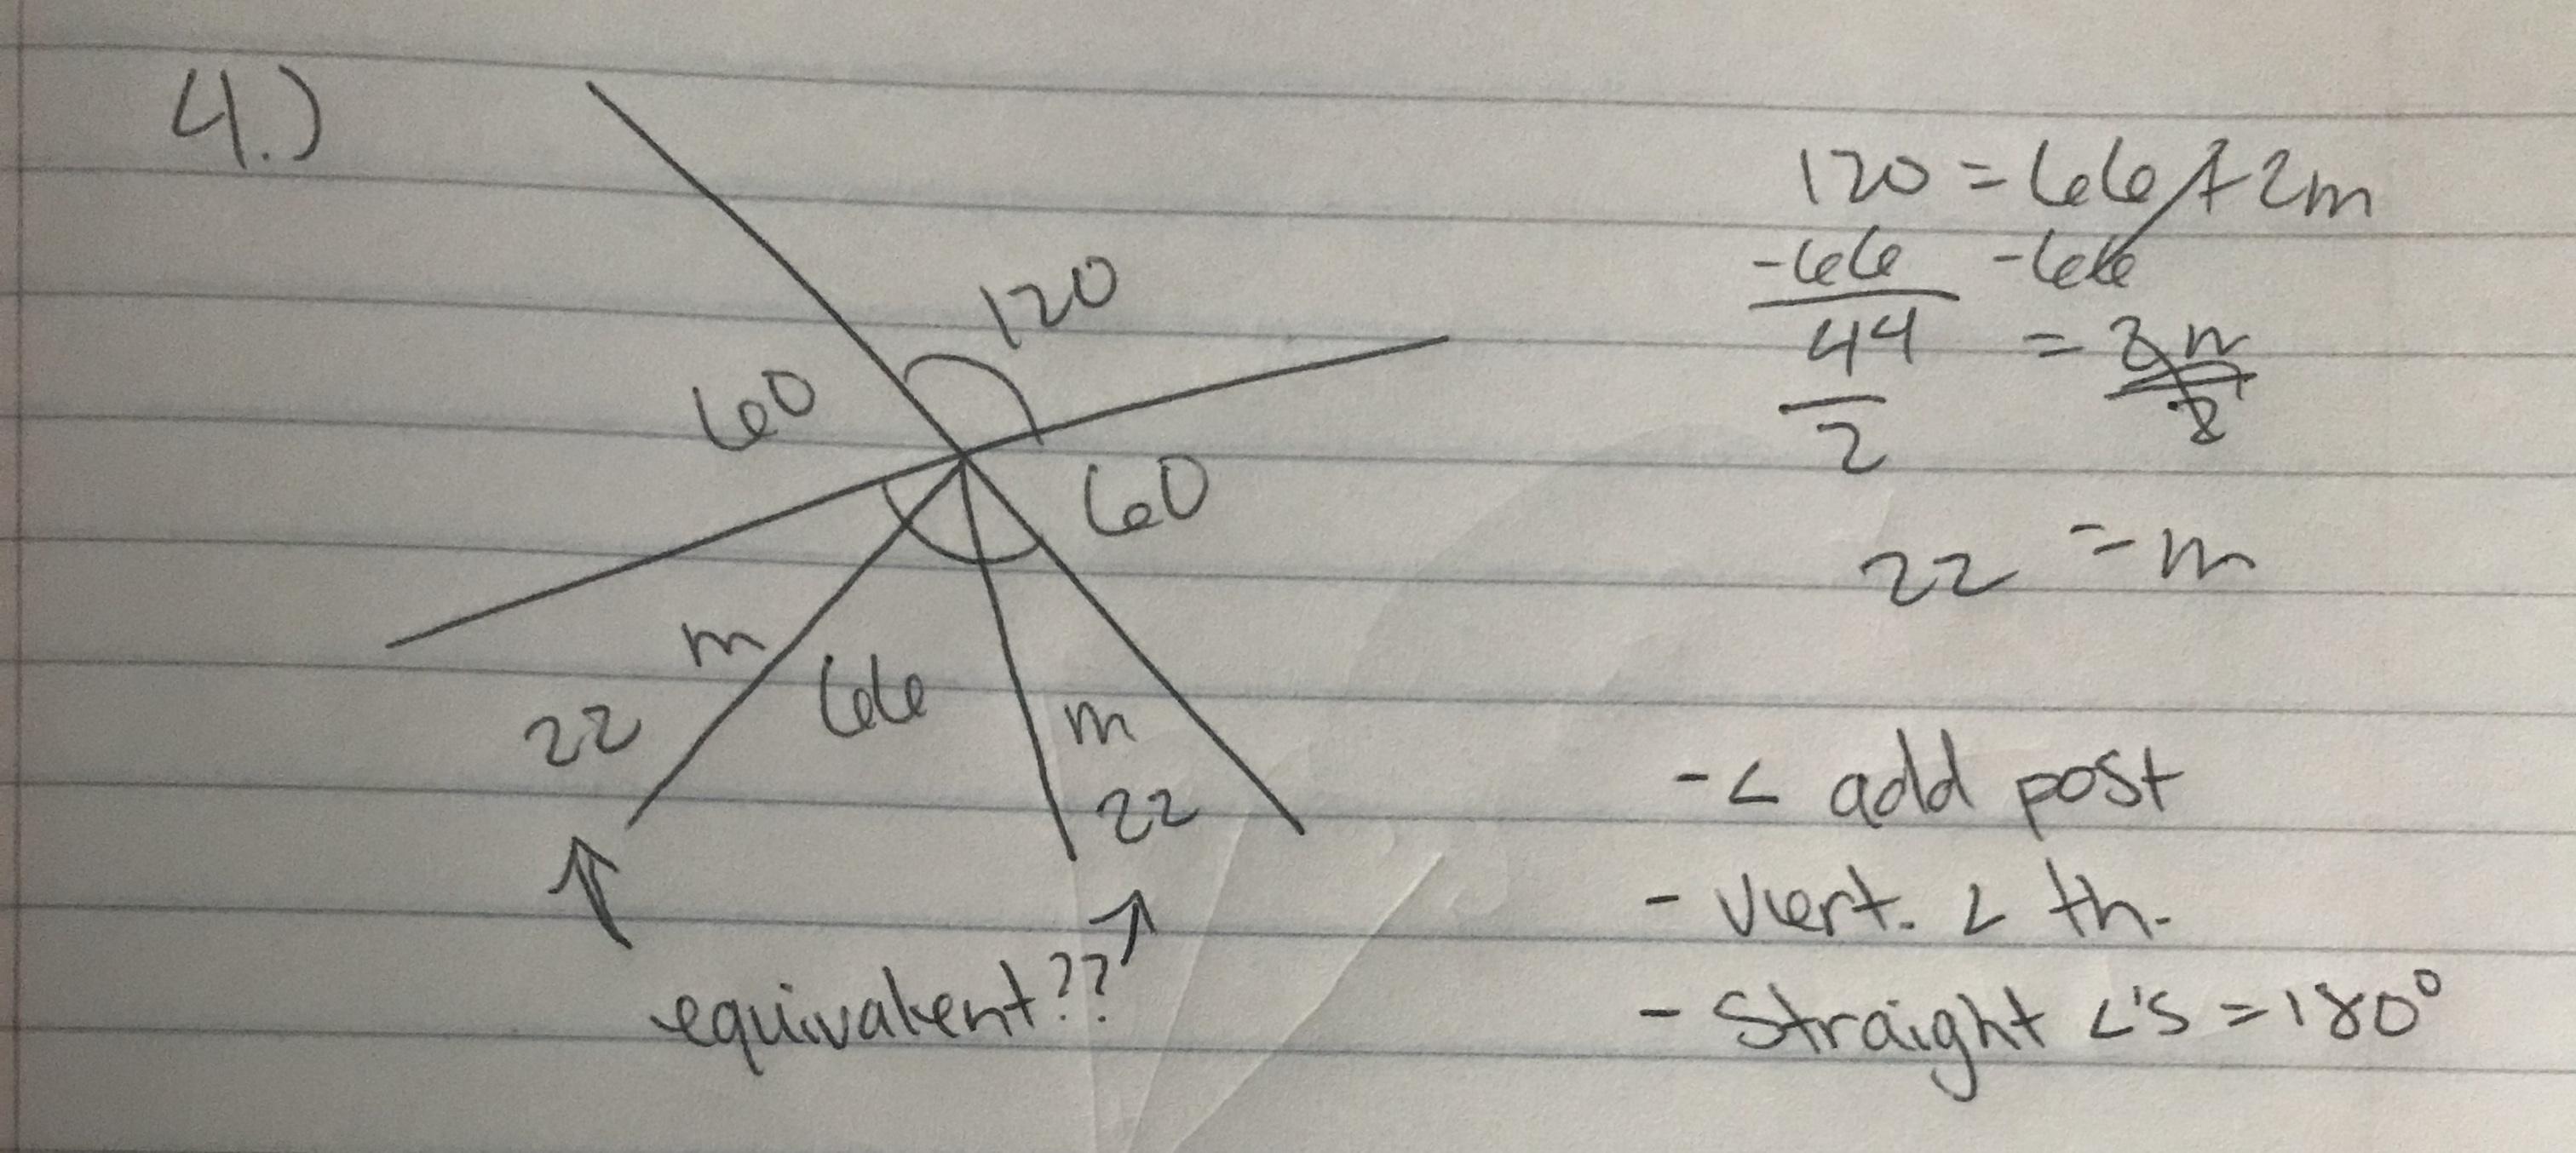 4.)
120
60
60
m
66
m
22
22
↑
↑
equivalent??
120 = 66 + 2m
-66 -66
44 = 2m
2 2
22 = m
- < add post
- Vert. < th.
- Straight <'s = 180°